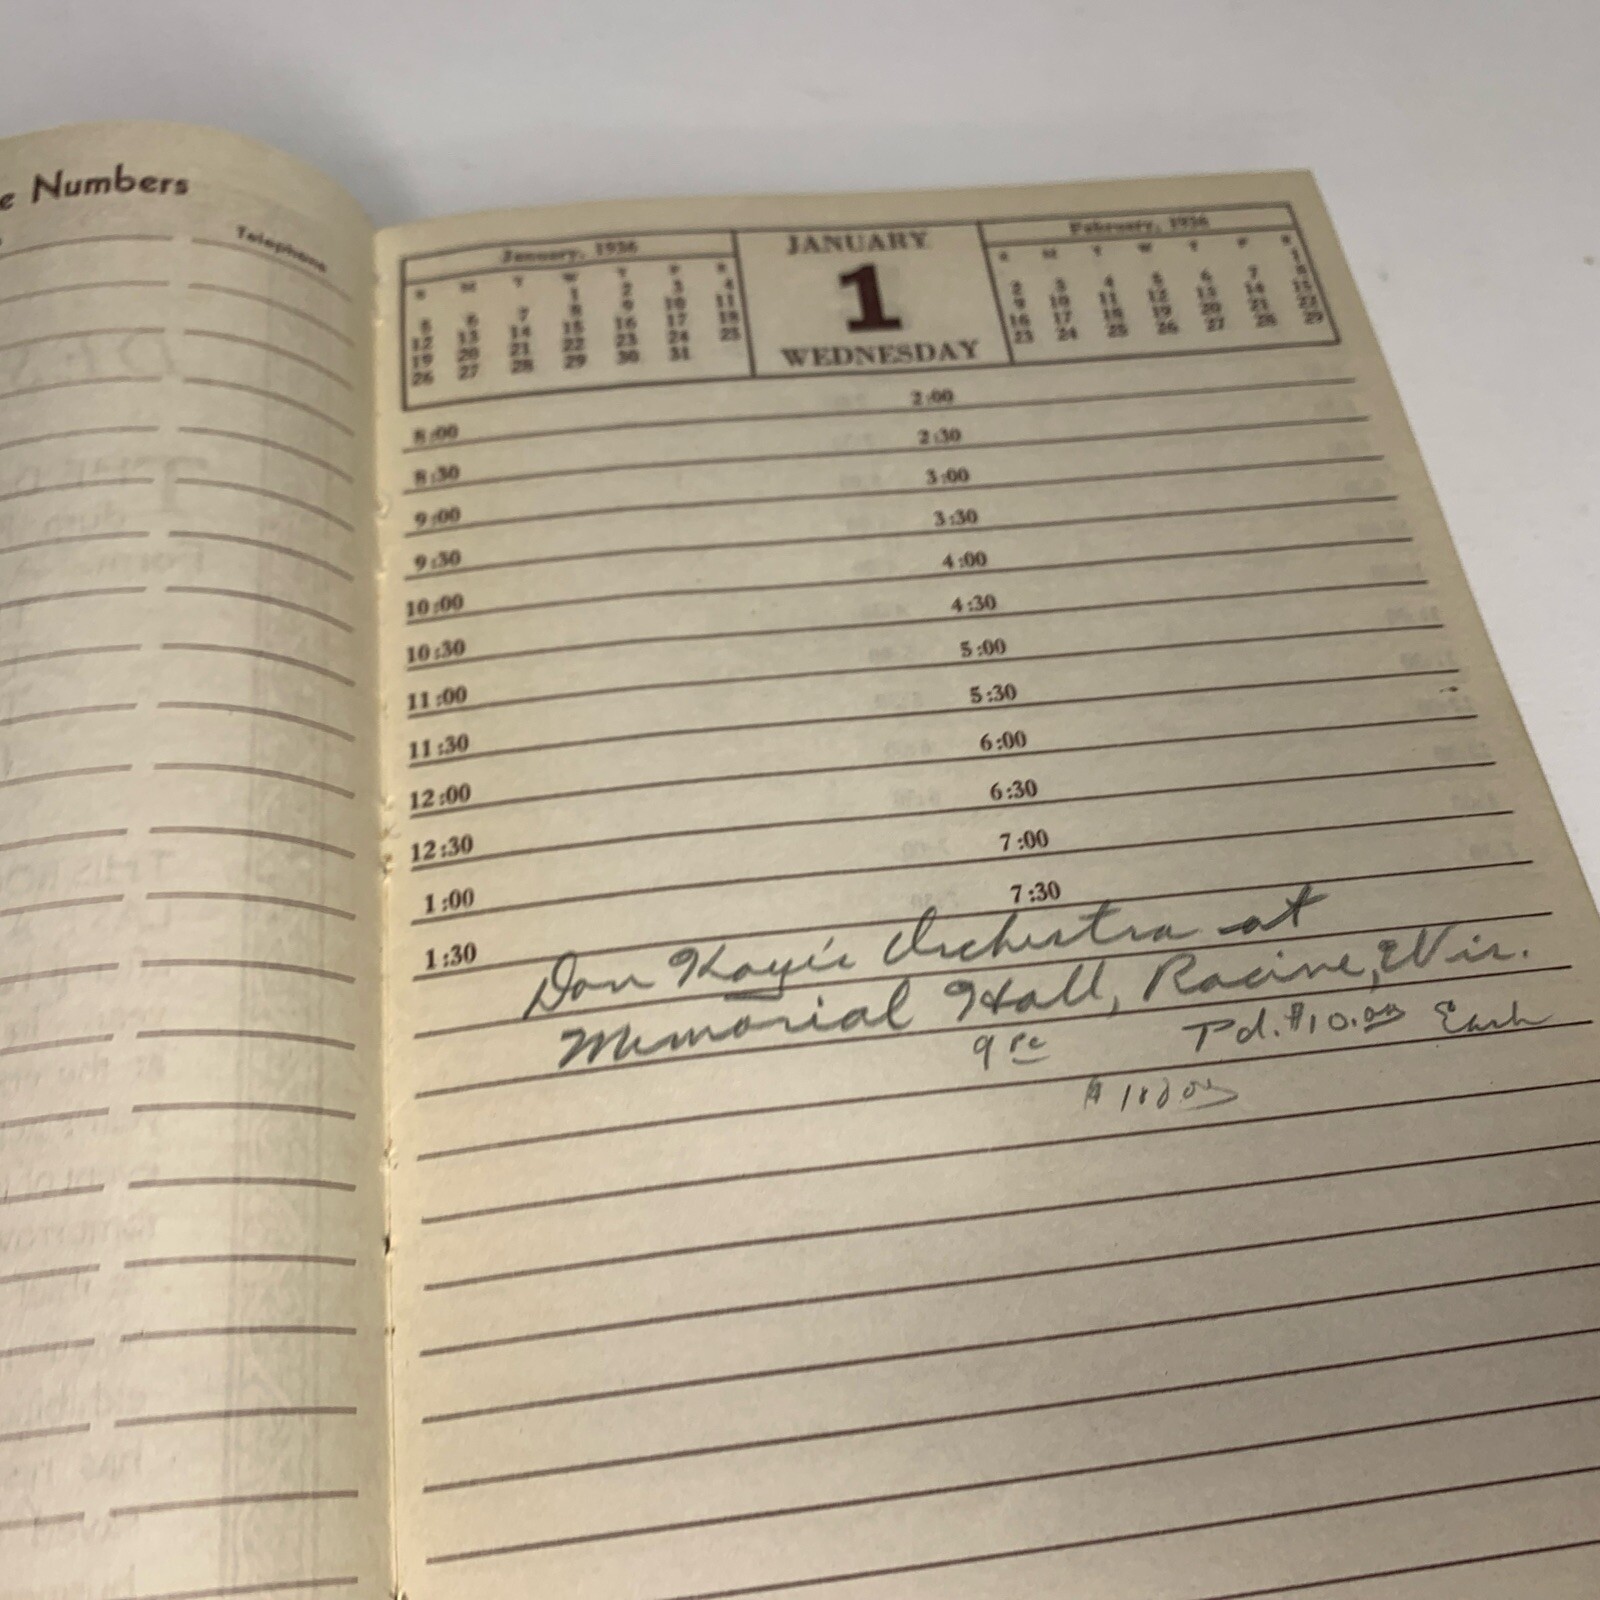 Numbers
Telephone
January, 1936
S M T W T F S
1 2 3 4
5 6 7 8 9 10 11
12 13 14 15 16 17 18
19 20 21 22 23 24 25
26 27 28 29 30 31
JANUARY
1
WEDNESDAY
February, 1936
S M T W T F S
1
2 3 4 5 6 7 8
9 10 11 12 13 14 15
16 17 18 19 20 21 22
23 24 25 26 27 28 29
8:00
8:30
9:00
9:30
10:00
10:30
11:00
11:30
12:00
12:30
1:00
1:30
2:00
2:30
3:00
3:30
4:00
4:30
5:00
5:30
6:00
6:30
7:00
7:30
Don Kaye's Orchestra at
Memorial Hall, Racine, Wis.
9 pc Pd. $10.00 Each